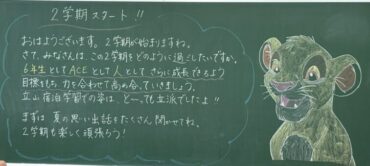 2学期スタート!!
おはようございます。2学期が始まりますね。
さて、みなさんは、この2学期をどのように過ごしたいですか。
6年生としてACEとして人として さらに成長できるよう
目標をもち、力を合わせて高め合っていきましょう。
立山宿泊学習での姿は、と〜っても立派でしたよ!!
まずは 夏の思い出話をたくさん聞かせてね。
2学期も楽しく頑張ろう!